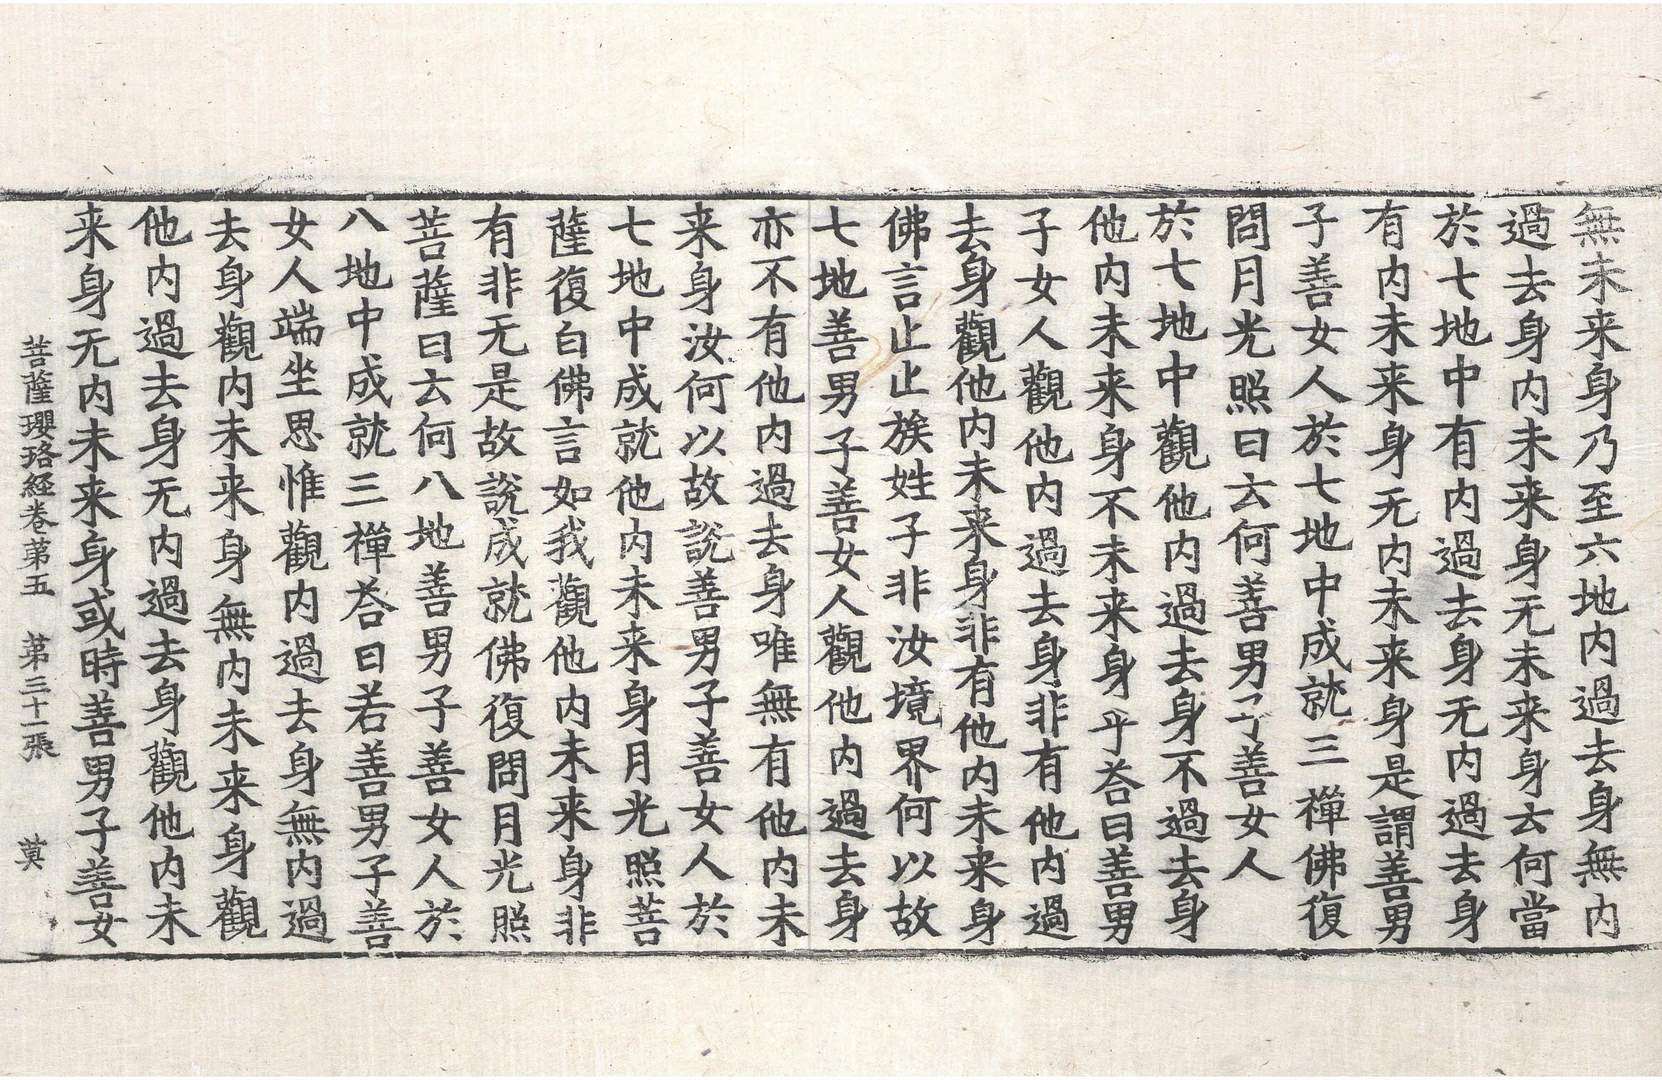 無未来身乃至六地內過去身無內
過去身內未来身无未来身云何當
於七地中有內過去身无內過去身
有內未来身无內未来身是謂善男
子善女人於七地中成就三禪佛復
問月光照曰云何善男子善女人
於七地中觀他內過去身不過去身
他內未来身不未来身乎荅曰善男
子女人觀他內過去身非有他內過
去身觀他內未来身非有他內未来身
佛言止止族姓子非汝境界何以故
七地善男子善女人觀他內過去身
亦不有他內過去身唯無有他內未
来身汝何以故說善男子善女人於
七地中成就他內未来身月光照菩
薩復白佛言如我觀他內未来身非
有非无是故說成就佛復問月光照
菩薩曰云何八地善男子善女人於
八地中成就三禪荅曰若善男子善
女人端坐思惟觀內過去身無內過
去身觀內未来身無內未来身觀
他內過去身无內過去身觀他內未
来身无內未来身或時善男子善女
菩薩瓔珞經卷第五　第三十一張　莫